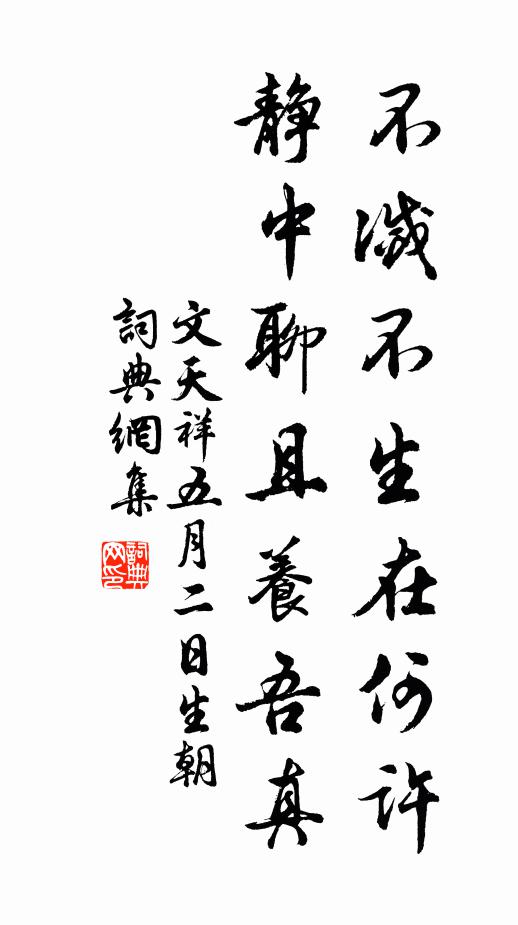 不滅不生在何許
靜中聊且養吾真
文天祥五月二日生朝
詞典網集
詞典網印